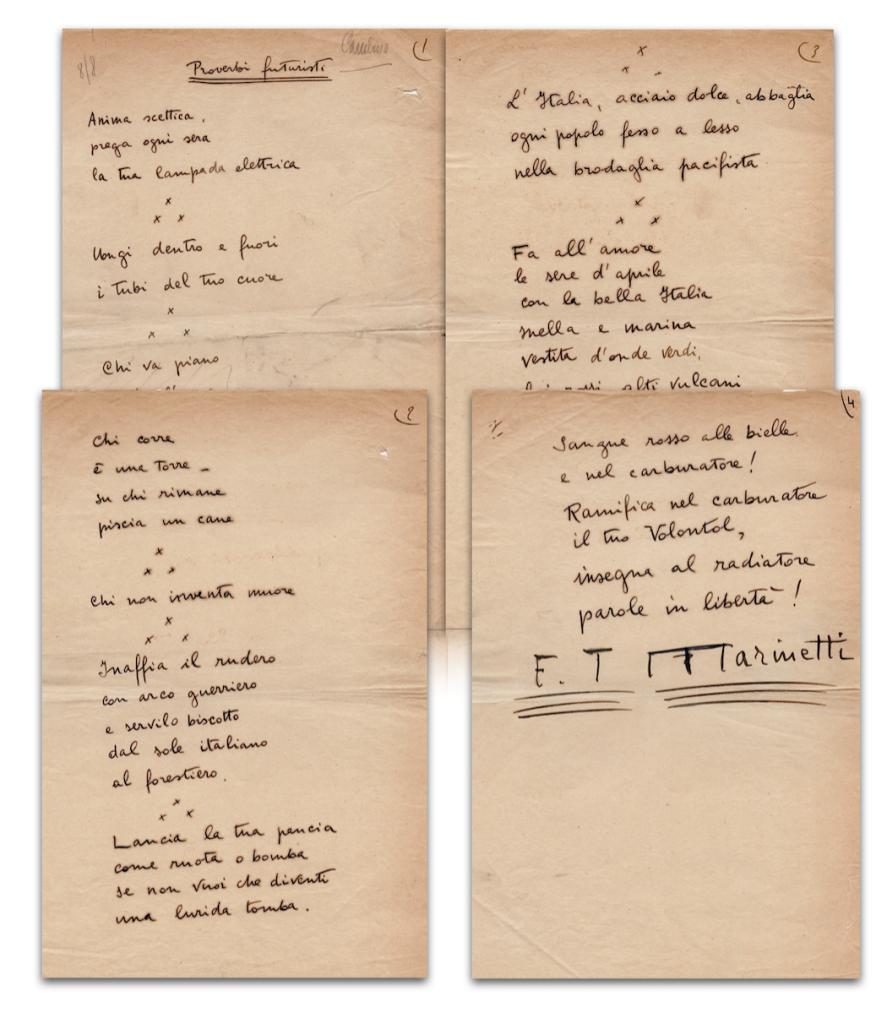 8/8
(1
Proverbi futuristi
Anima scettica,
prega ogni sera
la tua lampada elettrica
x
x x
Ungi dentro e fuori
i tubi del tuo cuore
x
x x
Chi va piano
(2
Chi corre
è una torre –
su chi rimane
piscia un cane
x
x x
Chi non inventa muore
x
x x
Inaffia il rudero
con arco guerriero
e servilo biscotto
dal sole italiano
al forestiero.
x
x x
Lancia la tua pancia
come ruota o bomba
se non vuoi che diventi
una lurida tomba.
(3
x
x
L'Italia, acciaio dolce, abbaglia
ogni popolo fesso a lesso
nella brodaglia pacifista
x
x x
Fa all'amore
le sere d'aprile
con la bella Italia
snella e marina
vestita d'onde verdi,
alti vulcani
(4
Sangue rosso alle bielle
e nel carburatore!
Ramifica nel carburatore
il tuo Volontol,
insegna al radiatore
parole in libertà!
F. T Marinetti